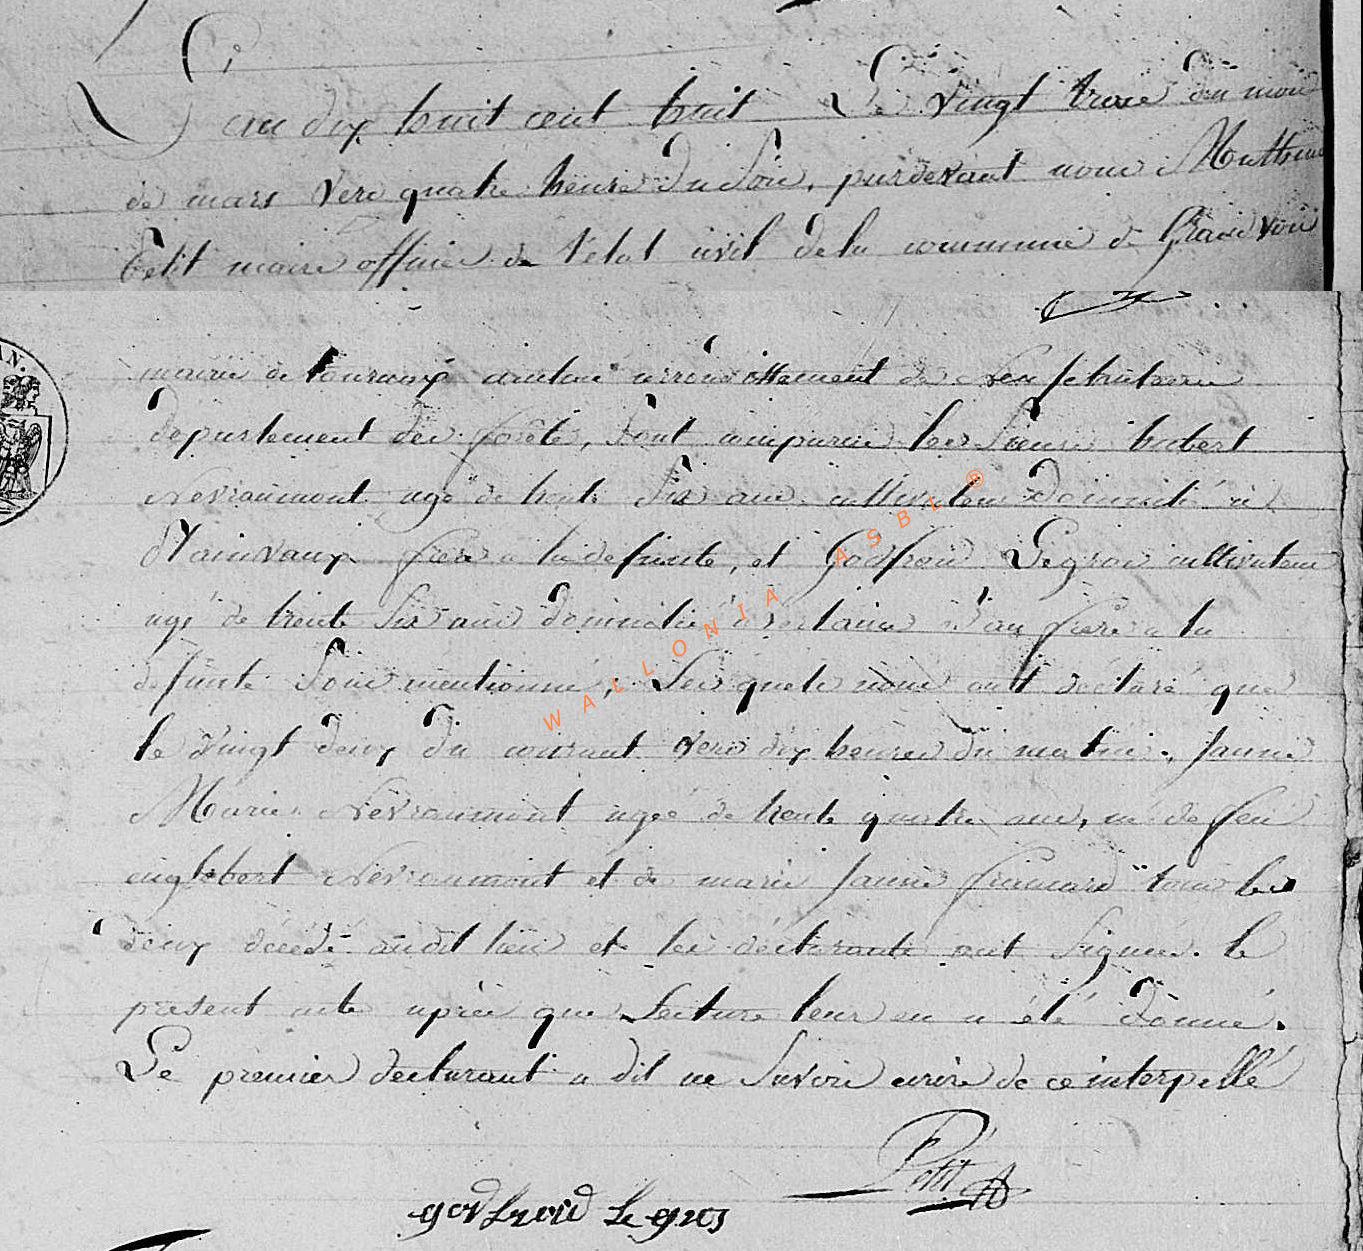 L'an dix huit cent huit Le vingt trois du mois
de mars vers quatre heure du soir, pardevant nous Matthieu
Petit maire officier de l'etat civil de la commune de Grandvoir
mairie de tournay canton arrondissement de Neufchateau
departement des forêts, sont comparus les sieurs hubert
Nevraumont agé de trente six ans cultivateur domicilié à
d'Namvaux frere a la defunte, et Godfroid Legros cultivateur
agé de trente six ans domicilié à vertaine beau frere a la
defunte sous mentionné, Les quels nous ont déclaré que
le vingt deux du courant vers dix heures du matin, Janne
Marie Nevraumont agée de trente quatre ans, né de feu
englebert Nevraumont et de marie Janne frumard tous les
deux décédé audit lieu et les déclarants ont signés le
present acte après que lecture leur en a été donné.
Le premier declarant a dit ne savoir ecrire de ce interpellé
Petit
godfroid Le gros
WALLONIA ASBL ®